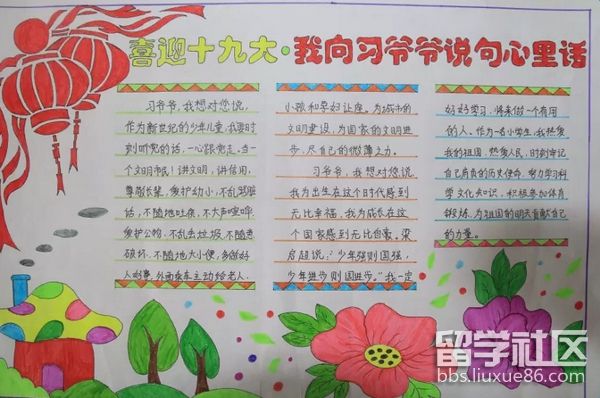 喜迎十九大·我向习爷爷说句心里话
习爷爷,我想对您说,
作为新世纪的少年儿童,我要时
刻听党的话,一心跟党走,当一
个文明市民!讲文明,讲信用,
尊敬长辈,爱护幼小,不乱骂脏
话,不随地吐痰,不大声喧哗.
爱护公物,不乱丢垃圾,不随意
破坏,不随地大小便,多做好
人好事,外面乘车主动给老人、
小孩和孕妇让座。为城市的
文明建设,为国家的文明进
步,尽自己的微薄之力。
习爷爷,我想对您说
我为出生在这个时代感到
无比幸福,我为成长在这
个国家感到无比自豪。梁
启超说:"少年强则国强,
少年进步则国进步。"我一定
好好学习,将来做一个有用
的人。作为一名小学生,我热爱
我的祖国,热爱人民,时刻牢记
自己肩负的历史使命,努力学习科
学文化知识,积极参加体育
锻炼,为祖国的明天贡献自己
的力量。
留学社区
bbs.liuxue86.com